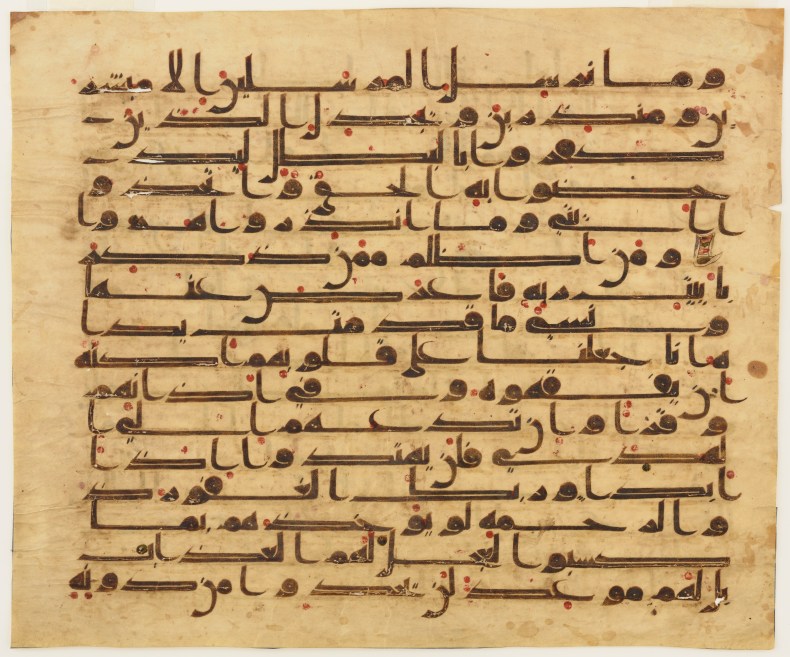 وما نرسل المرسلين الا مبشر
ين ومنذرين ويجدل الذين
كفروا بالبطل ليد
حضوا به الحق واتخذو
ا ايتي وما انذروا هزوا
ومن اظلم ممن ذكر
بايت ربه فاعرض عنها
ونسي ما قدمت يدا
ه انا جعلنا على قلوبهم اكنة
ان يفقهوه وفي اذانهم
وقرا وان تدعهم الى ا
لهدى فلن يهتدوا اذا
ابدا وربك الغفور ذ
و الرحمة لو يؤخذهم بما
كسبوا لعجل لهم العذاب
بل لهم موعد لن يجدوا من دونه